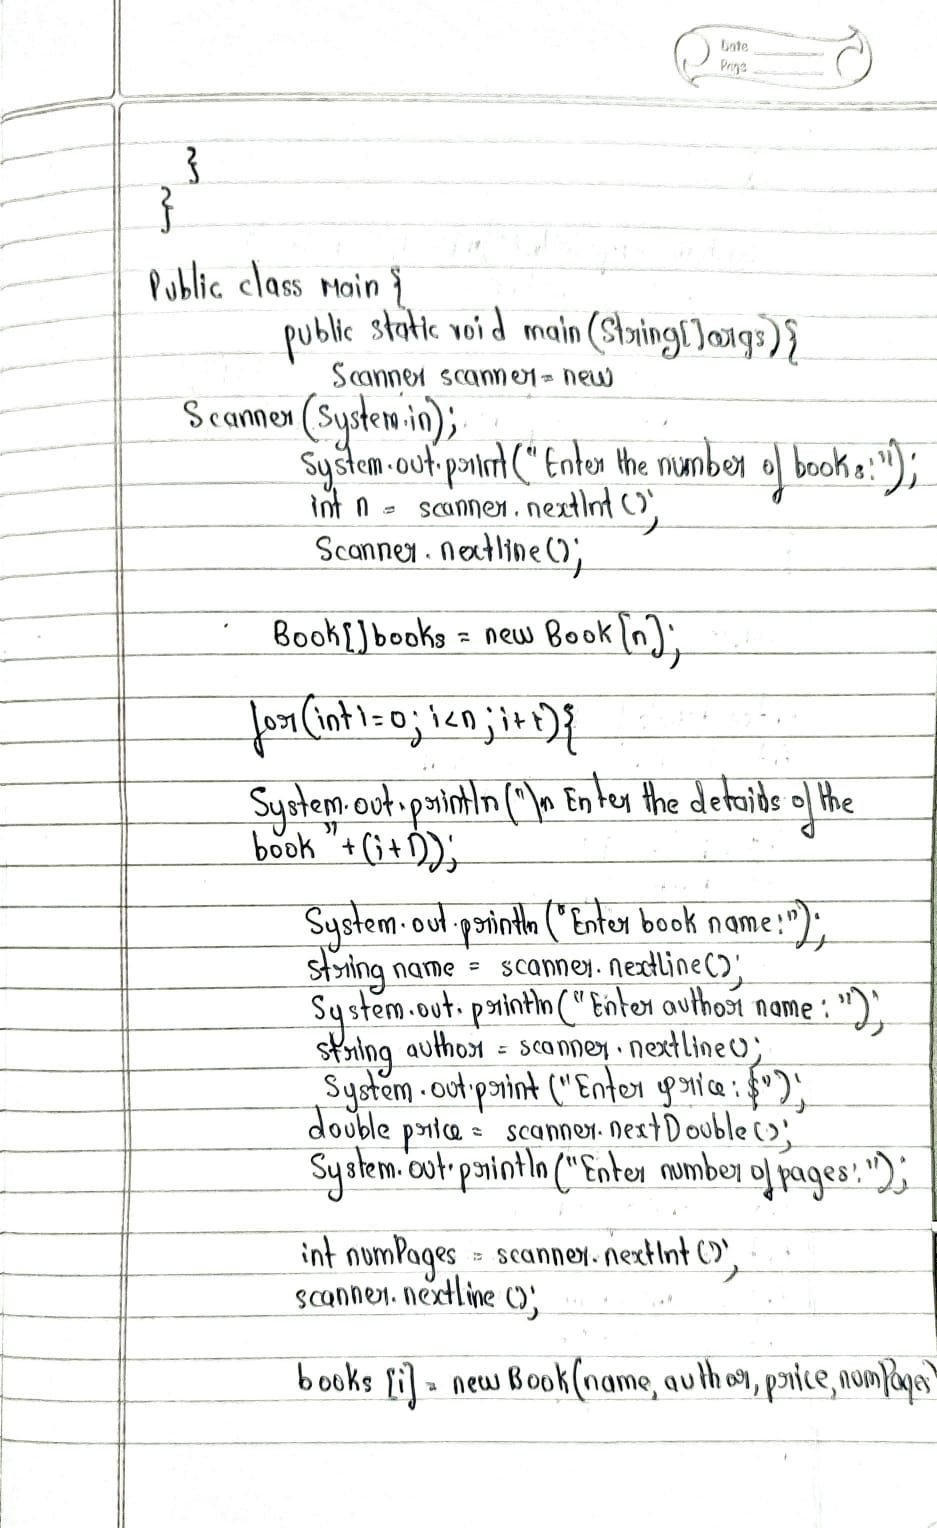 Date
Page
}
}
Public class Main {
public static void main(String[]args){
Scanner scanner = new
Scanner(System.in);
System.out.print("Enter the number of books:");
int n = scanner.nextInt();
Scanner.nextline();
Book[]books = new Book[n];
for(int i=0;i<n;i++){
System.out.println("\n Enter the detaids of the
book "+(i+1));
System.out.println("Enter book name:");
string name = scanner.nextline();
System.out.println("Enter author name:");
string author = scanner.nextline();
System.out.print("Enter price:$");
double price = scanner.nextDouble();
System.out.println("Enter number of pages:");
int numPages = scanner.nextInt();
scanner.nextline();
books[i] = new Book(name, author, price, numPages)